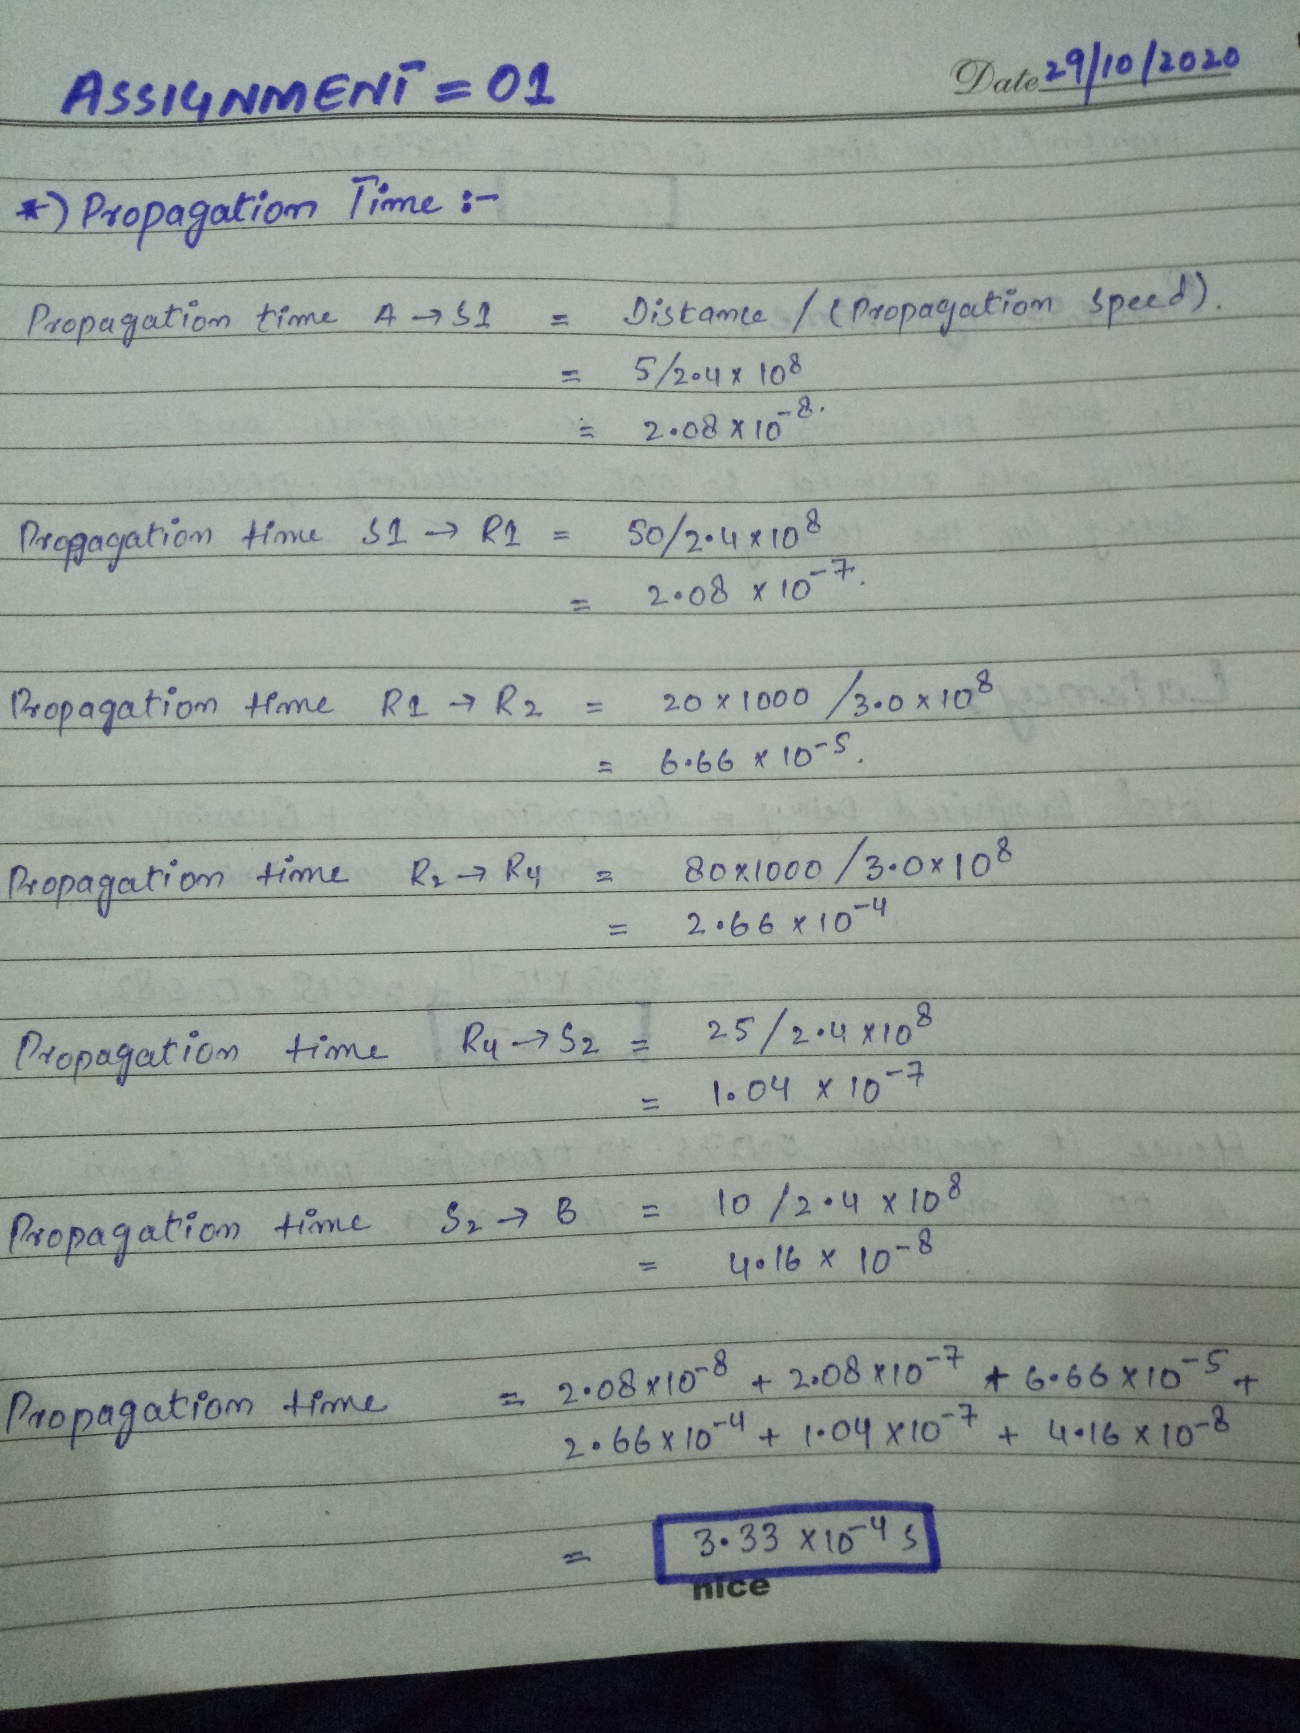 ASSIGNMENT = 01
Date 29/10/2020
*) Propagation Time :-
Propagation time A → S1 = Distance / (Propagation speed).
= 5/2.4 x 10^8
= 2.08 x 10^-8.
Propagation time S1 → R1 = 50/2.4 x 10^8
= 2.08 x 10^-7.
Propagation time R1 → R2 = 20 x 1000 /3.0 x 10^8
= 6.66 x 10^-5.
Propagation time R2 → R4 = 80x1000 /3.0x10^8
= 2.66 x 10^-4
Propagation time R4 → S2 = 25/2.4 x10^8
= 1.04 x 10^-7
Propagation time S2 → B = 10 /2.4 x 10^8
= 4.16 x 10^-8
Propagation time = 2.08x10^-8 + 2.08 x10^-7 + 6.66 x10^-5 +
2.66 x 10^-4 + 1.04 x10^-7 + 4.16 x 10^-8
= 3.33 x10^-4 s
nice